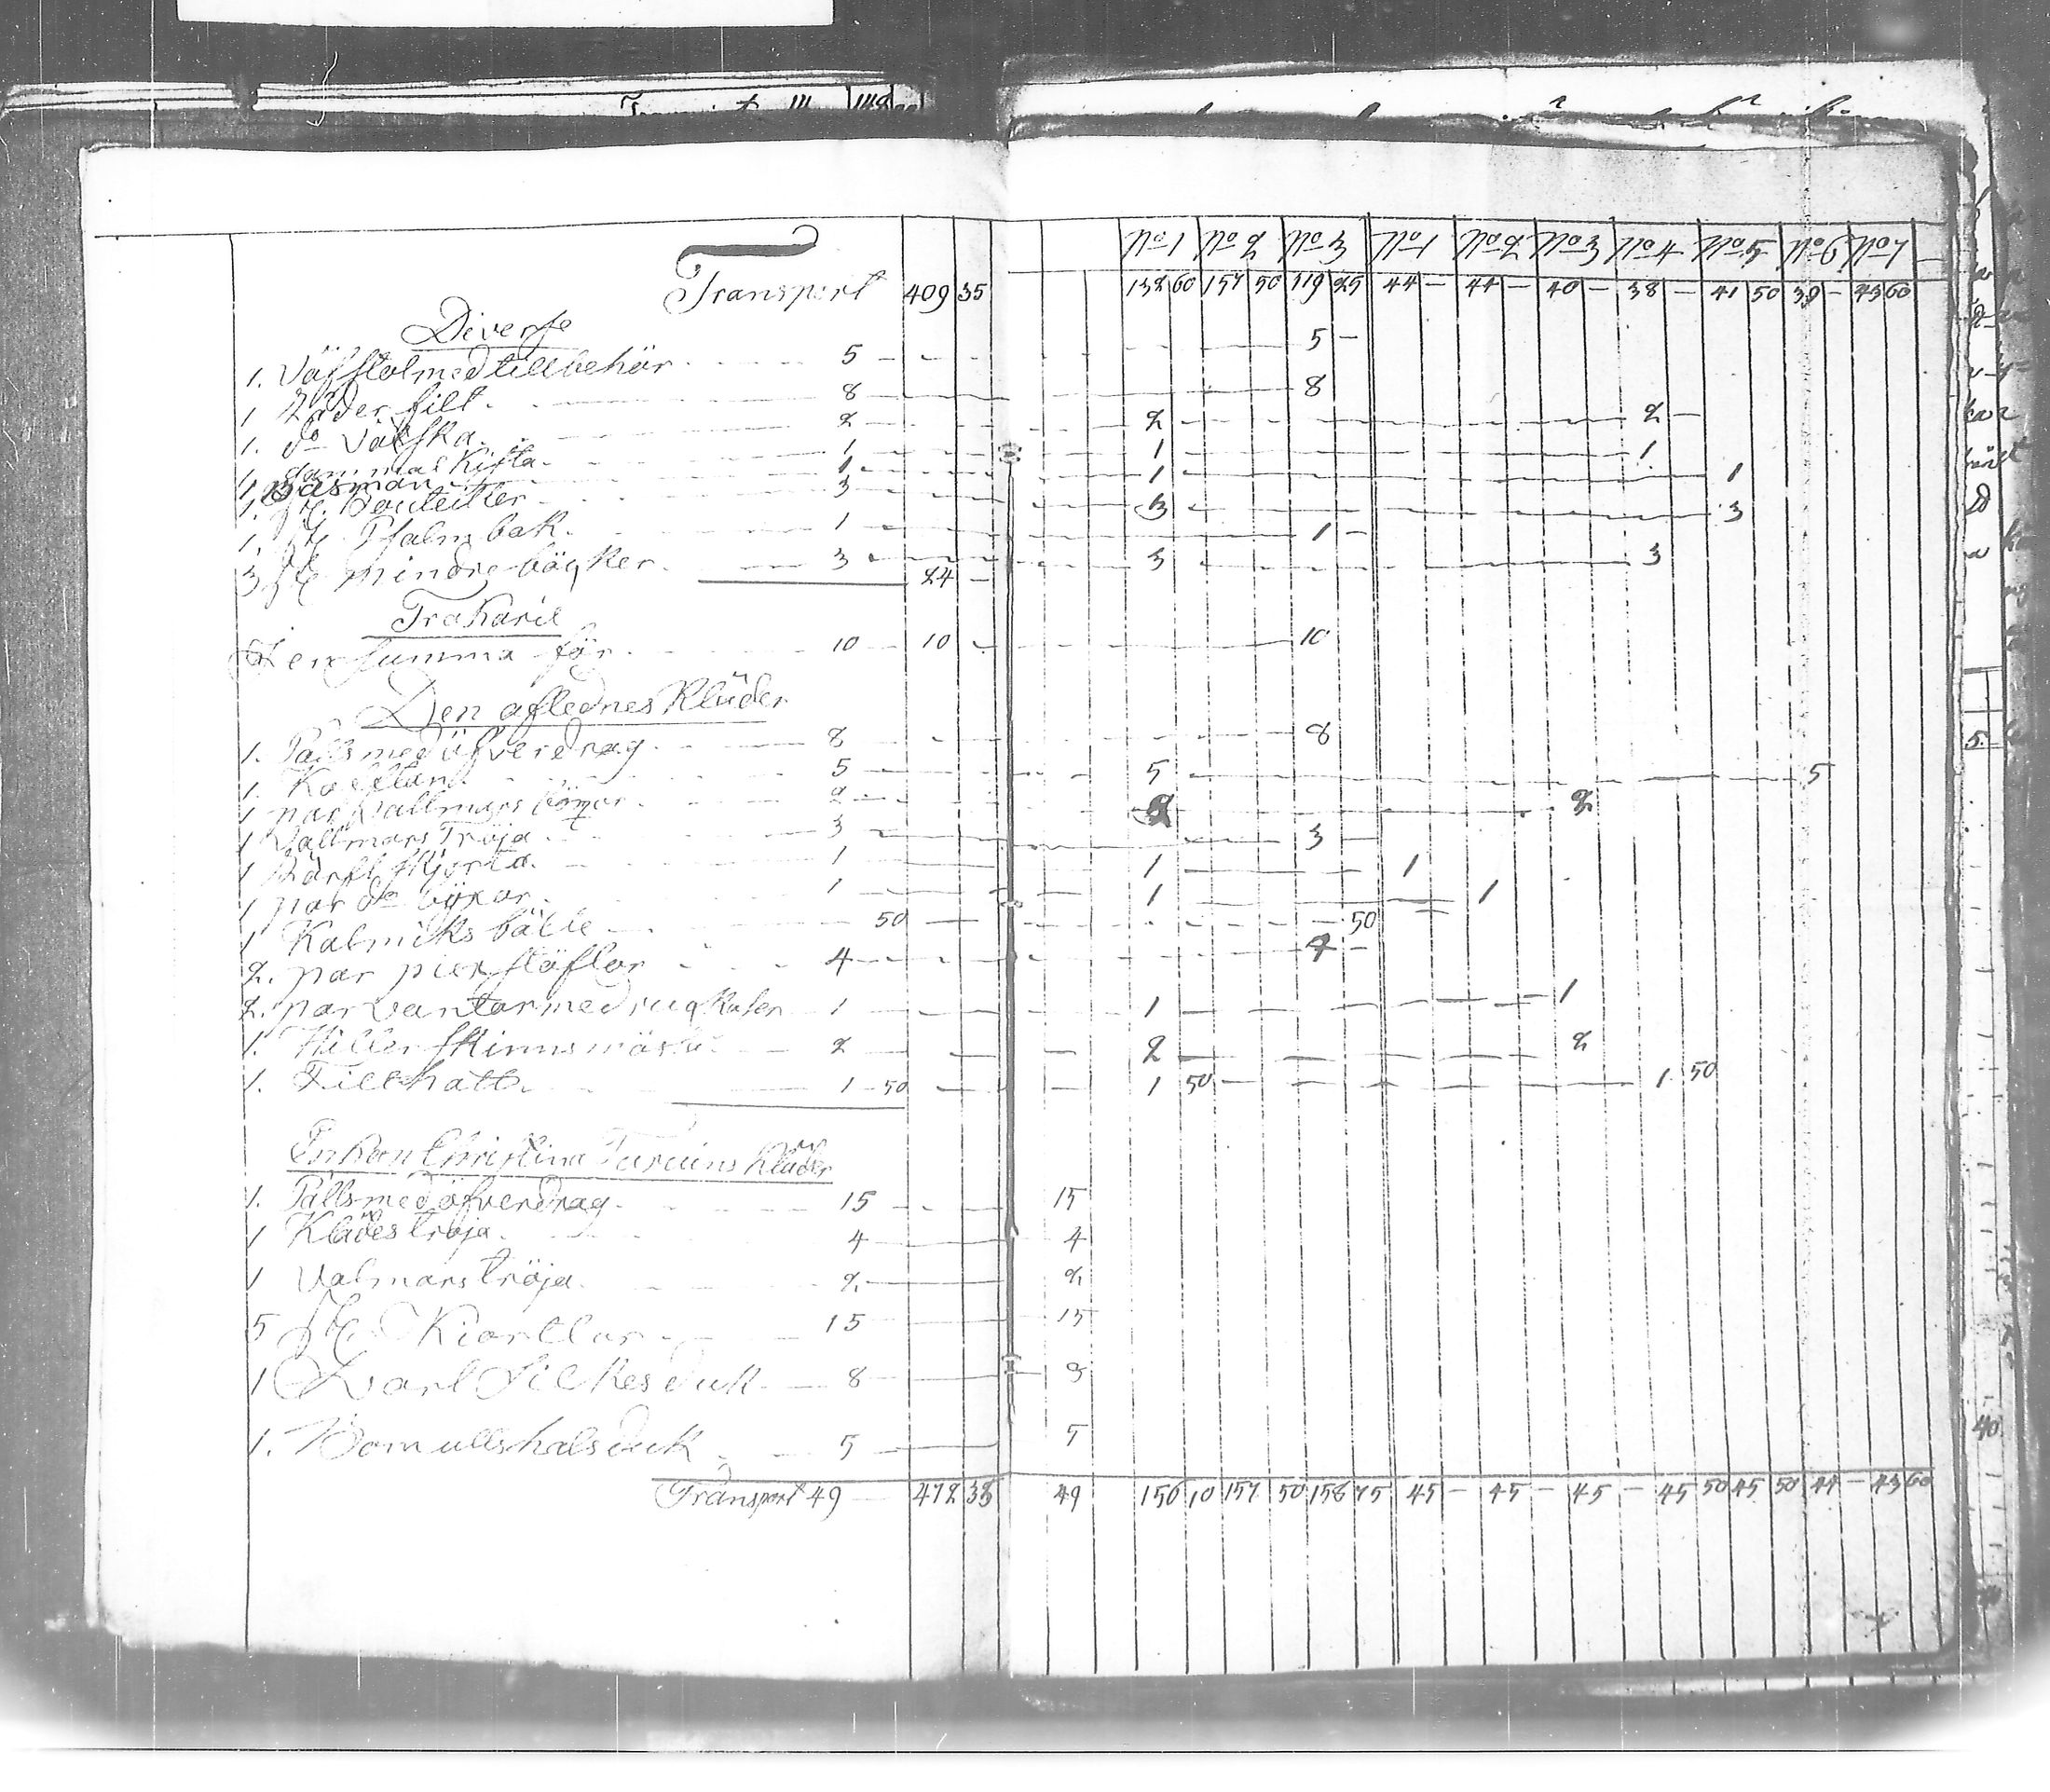 No 1 No 2 No 3 No 1 No 2 No 3 No 4 No 5 No 6 No 7
Transport 409 35 138 60 157 50 119 25 44 — 44 — 40 — 38 — 41 50 39 — 43 60
Diverse
1. Väfstol med tillbehör 5 — 5 —
1 Läder fill 8 8
1. do Vätska 2 2 2 —
1 Gammal Kista 1 1 1
1 Bäsman 1 1 1
1. St. Bouteiller 3 3 3
1. St. Psalmbok 1 1 —
3 St mindre böcker 3 24 — 3 3
Träkäril
En summa för 10 10 10
Den aflednes Kläder
1. Pälls med öfverdrag 8 8
1. Kafftan 5 5 5
1 par Vallmars böxor 2 2 2
1 Vallmars Tröja 3 3 —
1 Lärfts skjorta 1 1 1
1 par do böxor 1 1 1
1 Kalmiks bälte 50 50
2. par piexstöflor 4 4 —
2. par vantar med rugkasen 1 1 1
1. Hiller skinns mössa 2 2 2
1. Fillthatt 1 50 1 50 1 50
Enkan Christina Kläder
1. Pälls med öfverdrag 15 15
1 Klädes tröja 4 4
1 Valmars tröja 2 2
5 St Kiortlar 15 15
1 Svart Silkesduk 8 8
1. Bomullshalsduk 5 5
Transport 49 — 472 35 49 156 10 157 50 158 75 45 — 45 — 45 — 45 50 45 50 44 — 43 60